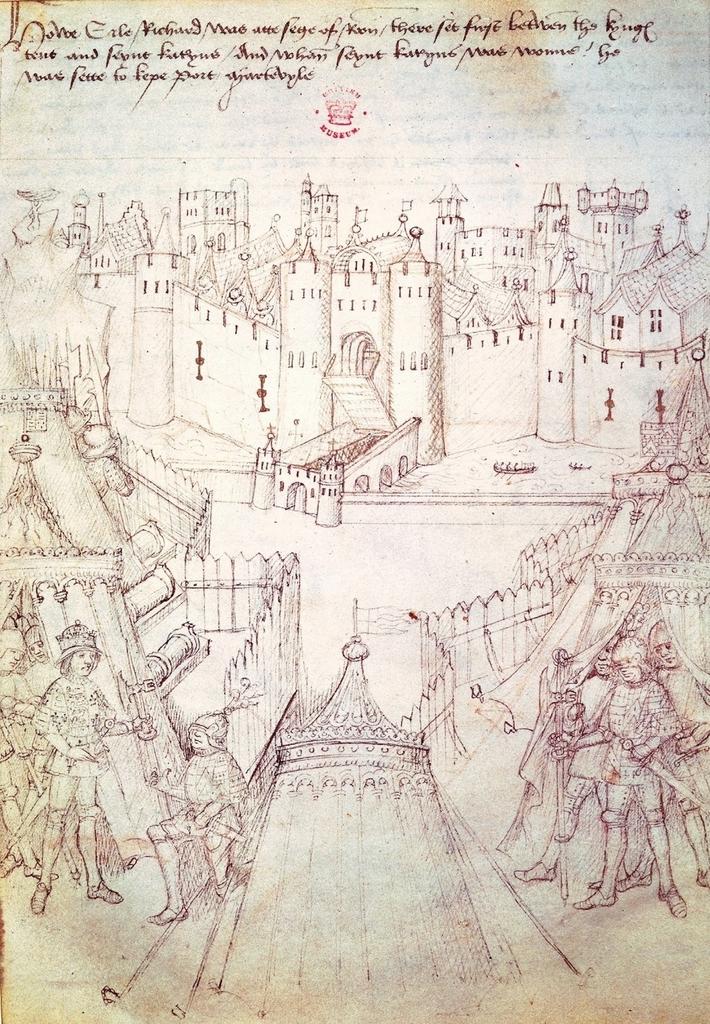 Howe Erle Richard was atte sege of Roon / there set furst betwen the kyngs
tent and seynt Katryns / And whan seynt Katryns was wonne / he
was sette to kepe Port Martevyle
BRITISH
MUSEUM